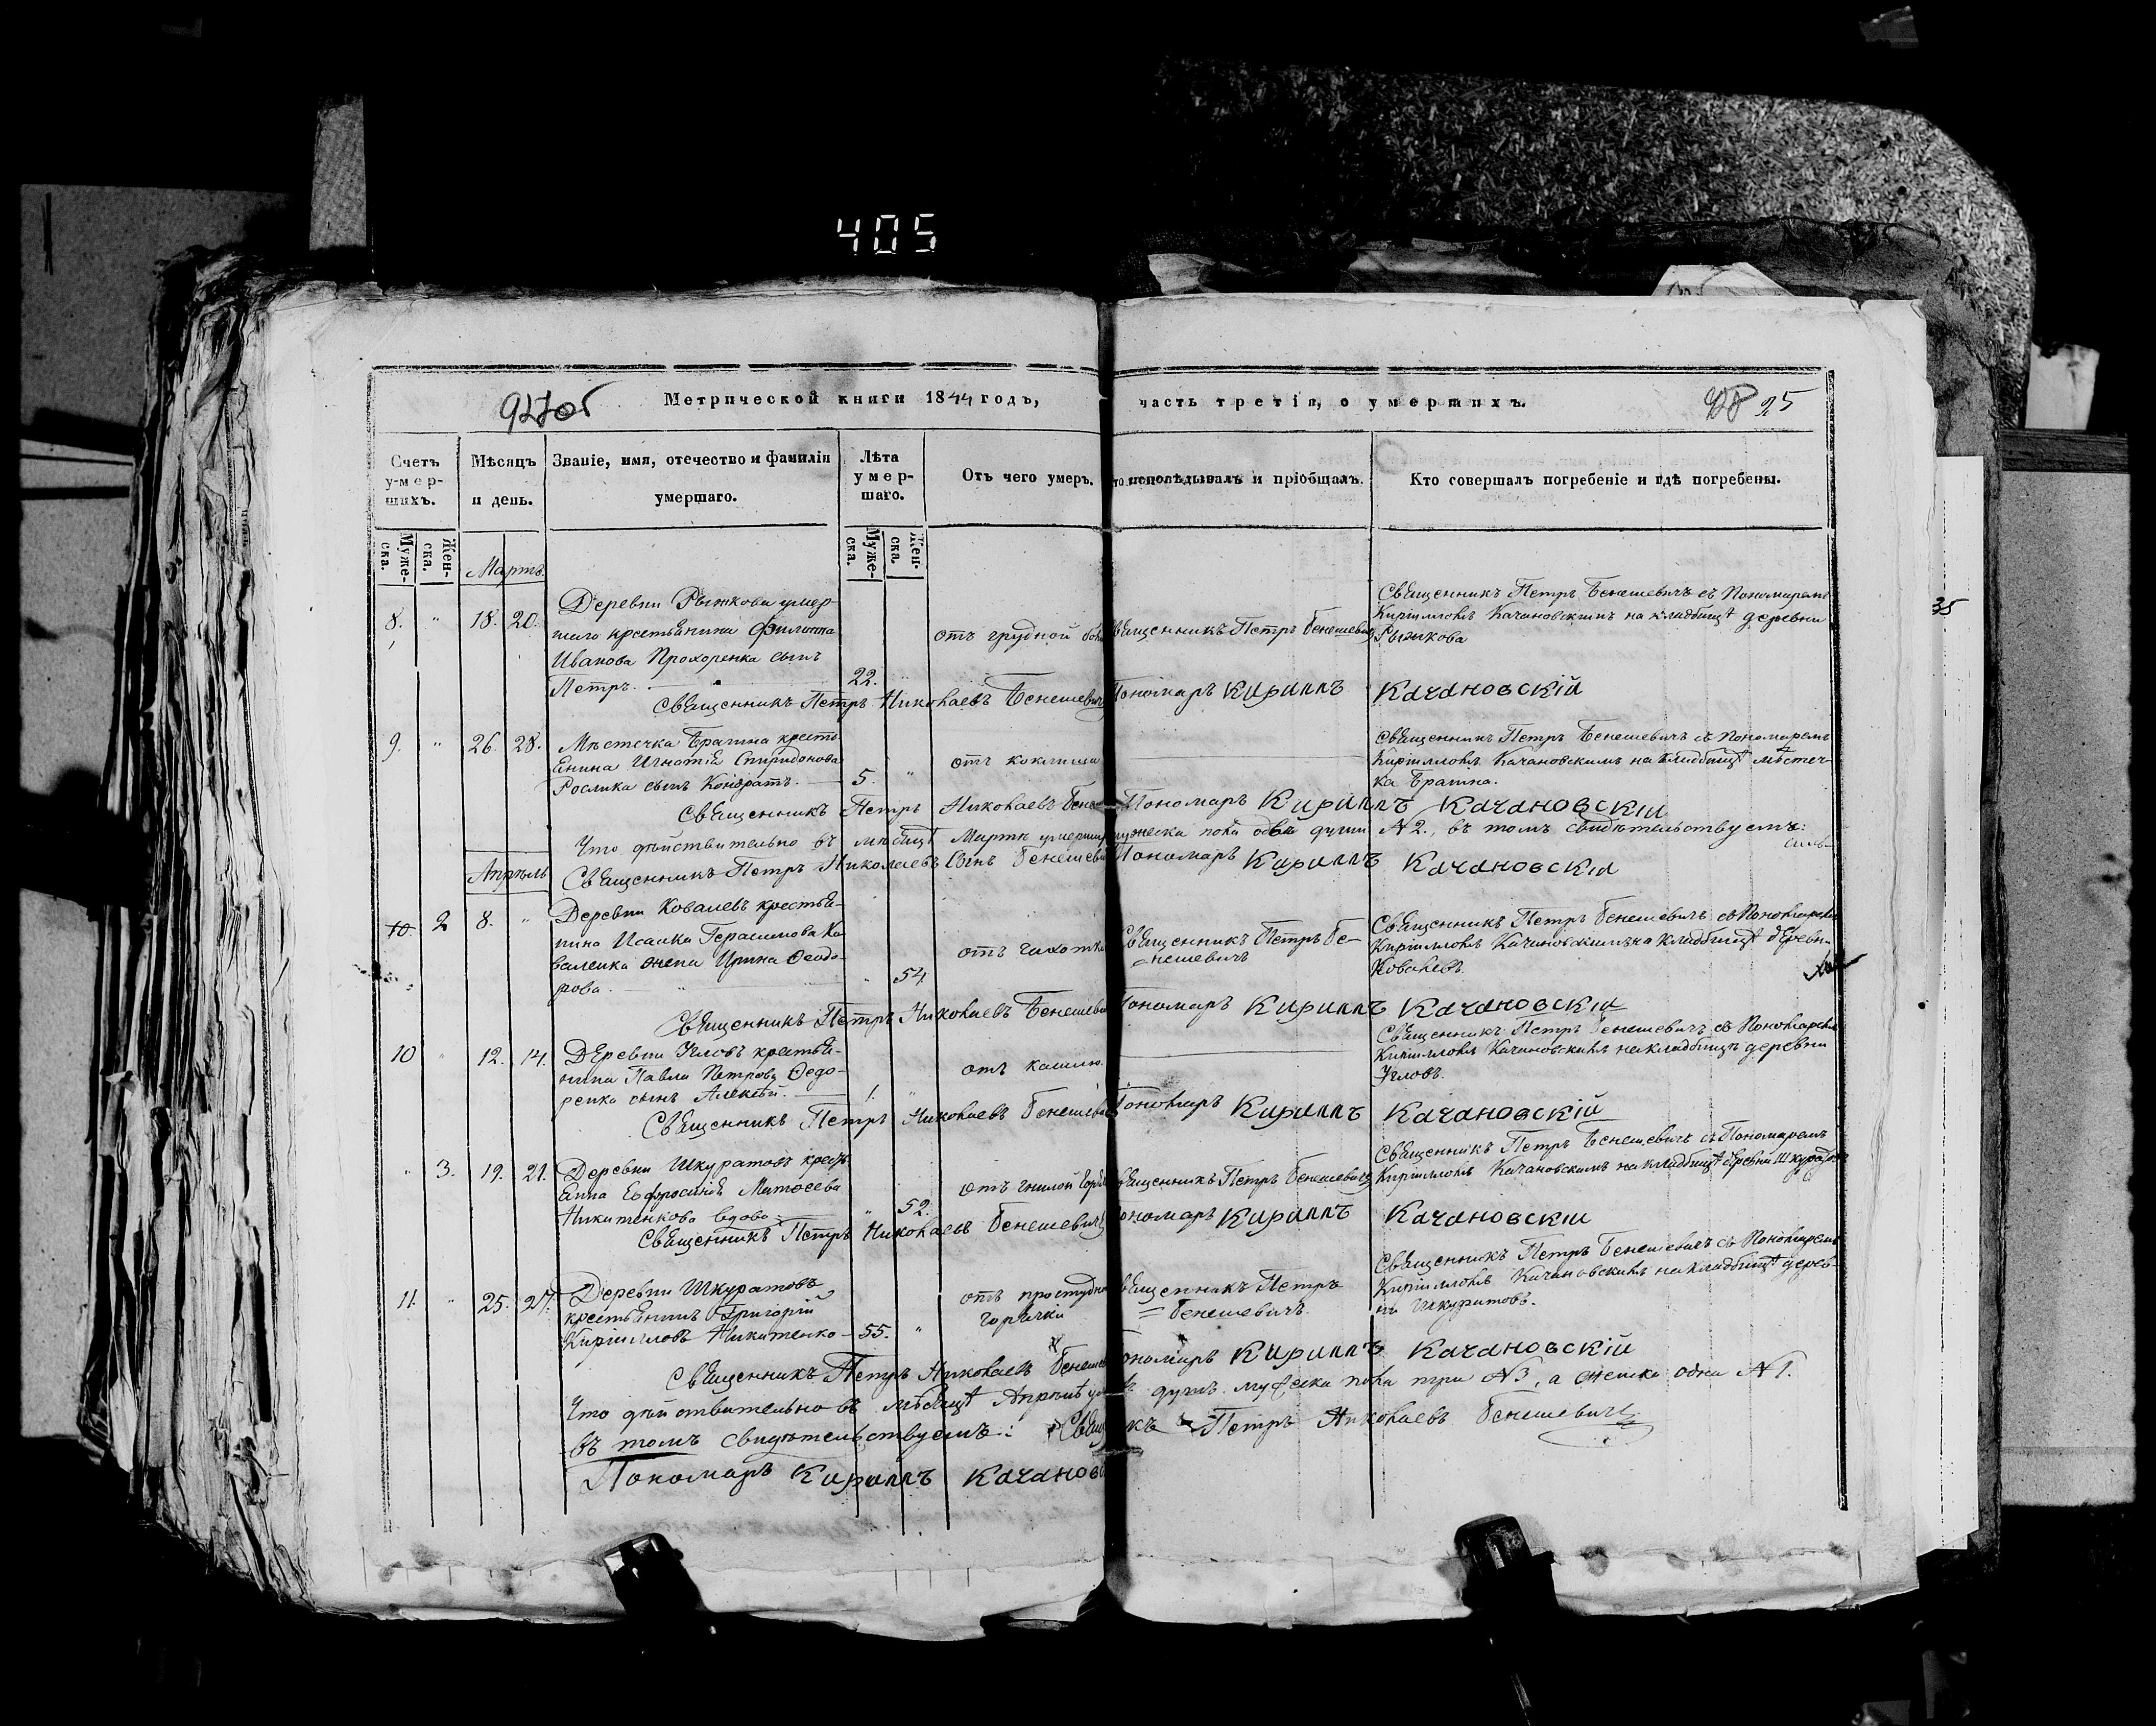 405
Метрической книги 1844 годъ, часть третія, о умершихъ.
25
Счетъ умер-шихъ.
Мѣсяцъ и день.
Званіе, имя, отечество и фамилія умершаго.
Лѣта умер-шаго.
Отъ чего умеръ.
исповѣдывалъ и пріобщалъ.
Кто совершалъ погребеніе и гдѣ погребены.
Муже-ска.
Жен-ска.
Муже-ска.
Жен-ска.
Мартъ.
8. " 18. 20.
Деревни Рыжкова умер-
шаго крестьянина Филиппа
Иванова Прохоренка сынъ
Петръ. 22.
отъ грудной
Священникъ Петръ Бенешевичъ
Священникъ Петръ Бенешевичъ съ Пономаремъ
Кирилломъ Качановскимъ на кладбищѣ деревни
Рыжкова
Священникъ Петръ Николаевъ Бенешевичъ Пономаръ Кириллъ Качановскій
9. " 26. 28.
Мѣстечка Брагина кресть-
янина Игнатія Спиридонова
Рослика сынъ Кондратъ. 5. "
отъ коклюша
Священникъ Петръ Бенешевичъ съ Пономаремъ
Кирилломъ Качановскимъ на кладбищѣ мѣстеч-
ка Брагина.
Священникъ Петръ Николаевъ Пономаръ Кириллъ Качановскій
Что дѣйствительно въ мѣсяцѣ Мартѣ мужеска пола двѣ души N 2., въ томъ свидѣтельствуемъ:
Священникъ Петръ Николаевъ сынъ Бенешевичъ Пономаръ Кириллъ Качановскій
Апрѣль
10. 2 8. "
Деревни Ковалевъ крестья-
нина Исаака Герасимова Ко
валенка жена Ирина Ѳеодо-
рова. " 54
отъ чахотки
Священникъ Петръ Бе-
нешевичъ
Священникъ Петръ Бенешевичъ съ Пономаремъ
Кирилломъ Качановскимъ на кладбищѣ деревни
Ковалевъ.
Священникъ Петръ Николаевъ Бенешевичъ Пономаръ Кириллъ Качановскій
10 " 12. 14.
Деревни Угловъ крестья-
нина Павла Петрова Ѳедо-
ренка сынъ Алексѣй. 1. "
отъ кашлю.
Священникъ Петръ Бенешевичъ съ Пономаремъ
Кирилломъ Качановскимъ на кладбищѣ деревни
Угловъ.
Священникъ Петръ Николаевъ Бенешевичъ Пономаръ Кириллъ Качановскій
" 3. 19. 21.
Деревни Шкуратовъ кресть
янка Ефросинія Матѳеева
Никитенкова вдова. " 52.
отъ гнилой
Священникъ Петръ Бенешевичъ
Священникъ Петръ Бенешевичъ съ Пономаремъ
Кирилломъ Качановскимъ на кладбищѣ деревни Шкуратовъ
Священникъ Петръ Николаевъ Бенешевичъ Пономаръ Кириллъ Качановскій
11. " 25. 27.
Деревни Шкуратовъ
крестьянинъ Григорій
Кирилловъ Никитенко 55. "
отъ простудной
горячки
Священникъ Петръ
Бенешевичъ.
Священникъ Петръ Бенешевичъ съ Пономаремъ
Кирилломъ Качановскимъ на кладбищѣ дерев-
ни Шкуратовъ.
Священникъ Петръ Николаевъ Пономаръ Кириллъ Качановскій
Что дѣйствительно въ мѣсяцѣ Апрѣлѣ душъ мужеска пола три N 3, а женска одна N 1.
въ томъ свидѣтельствуемъ: Священникъ Петръ Николаевъ Бенешевичъ
Пономаръ Кириллъ Качановскій
35